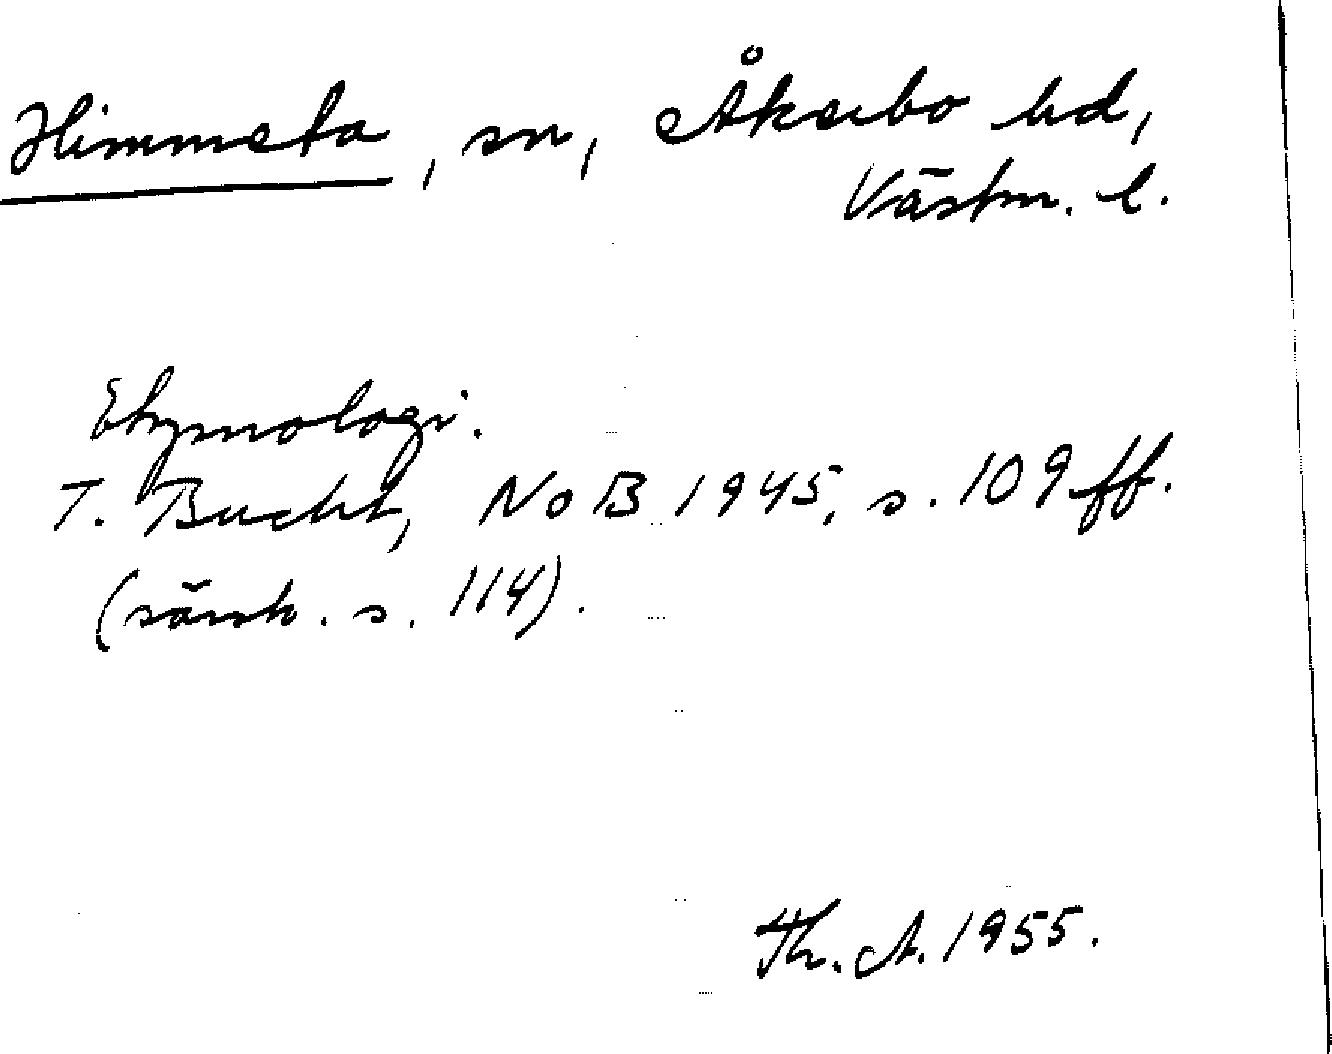 Himmeta, sn, Åkerbo hd,
Västm. l.
Etymologi.
T. Bucht, NoB 1945, s. 109 ff.
(särsk. s. 114).
Th. A. 1955.